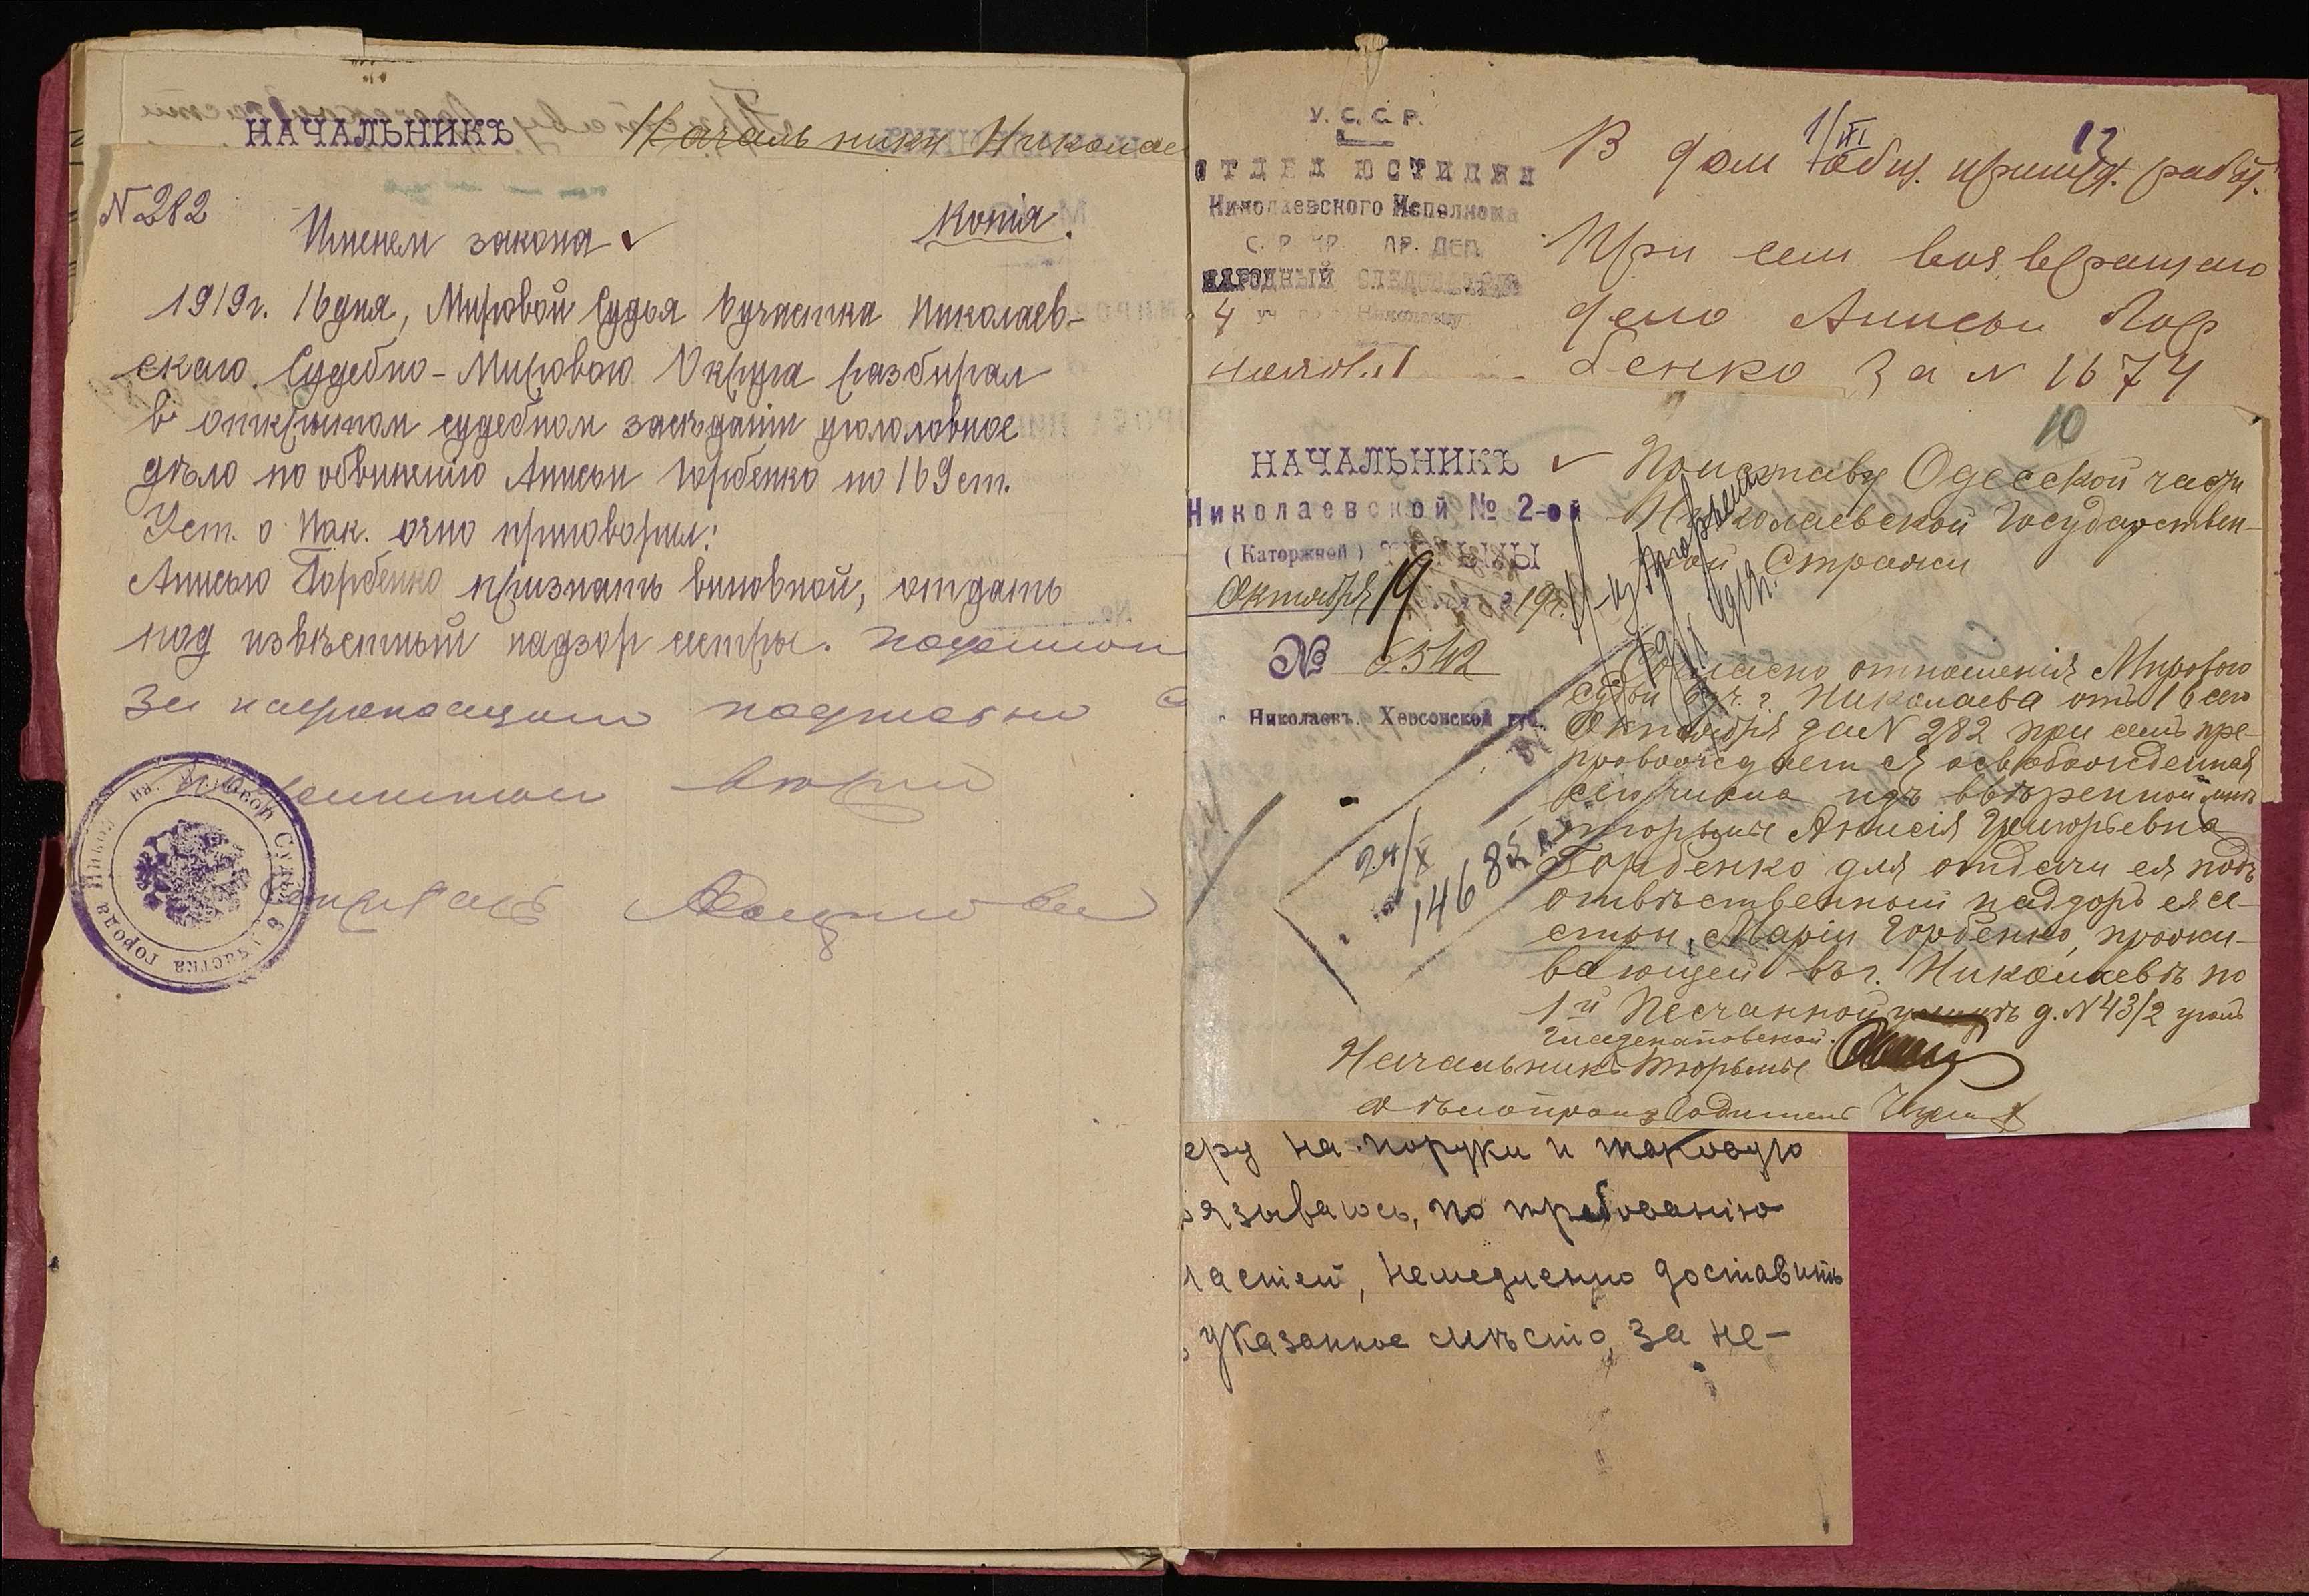 НАЧАЛЬНИКЪ
Начальнику Николае
N 282
Именем закона
Копія.
1919г. 16 дня, Мировой Судья 6 участка Николаев-
скаго Судебно-Мирового Округа разбирал
в открытом судебном засѣданіи уголовное
дѣло по обвиненію Анисьи Горбенко по 169 ст.
Уст. о Нак. приговорил:
Анисью Горбенко признать виновной, отдать
под извѣстный надзор сестры.
За надлежащим
Секретарь
У. С. С. Р.
ОТДЕЛ ЮСТИЦИИ
Николаевского Исполкома
НАРОДНЫЙ СЛЕДОВАТЕЛЬ
4 уч. Николаеву
1/III
12
В дом общ. принуд. работ.
При сем возвращаю
дело Анисьи Гор
бенко за N 1674
10
НАЧАЛЬНИКЪ
Николаевской № 2-ой
(Каторжной) ТЮРЬМЫ
Октября 19 19 г.
№ 6542
Николаевъ, Херсонской губ.
Приставу Одесской части
Николаевской Государствен-
ной Стражи
Согласно отношенія Мирового
Судьи 6 уч. г. Николаева отъ 16 сего
Октября за N 282 при семъ пре-
провождается освобожденная
сего числа изъ ввѣренной мнѣ
тюрьмы Анисія Григорьевна
Горбенко для отдачи ея подъ
отвѣтственный надзоръ ея се-
стры, Маріи Горбенко, прожи-
вающей въ г. Николаевѣ по
1й Песчанной улицѣ д. N 43/2 уголъ
Начальникъ тюрьмы
Дѣлопроизводитель
24/X
14685
еру на поруки и таковую
язываюсь, по требованію
ластей, немедленно доставить
указанное мѣсто, за не-